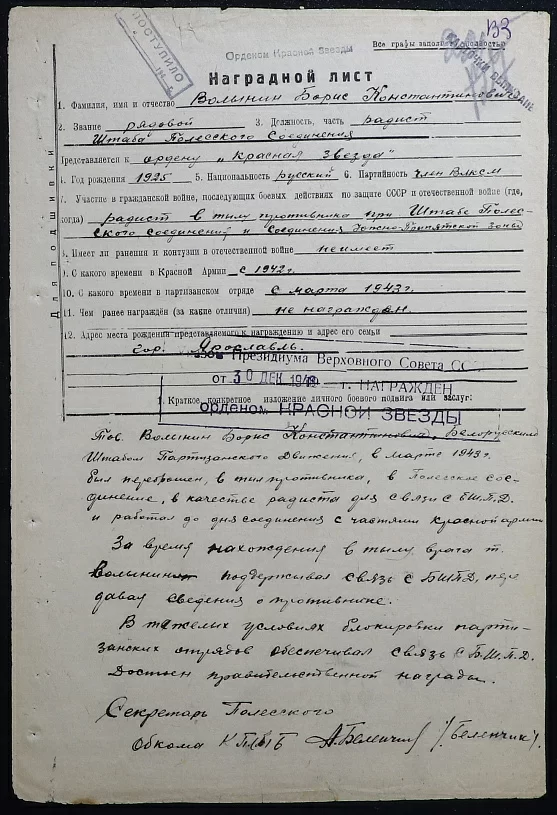 ПОСТУПИЛО
Орденом Красной Звезды
133
Все графы заполнять полностью
Наградной лист
1. Фамилия, имя и отчество Волынин Борис Константинович
2. Звание рядовой 3. Должность, часть радист
Штаба Полесского Соединения
Представляется к ордену „Красная Звезда"
4. Год рождения 1925 5. Национальность русский 6. Партийность член ВЛКСМ
7. Участие в гражданской войне, последующих боевых действиях по защите СССР и отечественной войне (где,
когда) радист в тылу противника при Штабе Полес-
ского соединений и соединения Южно-Припятской Зоны
8. Имеет ли ранения и контузии в отечественной войне неимеет
9. С какого времени в Красной Армии с 1942 г.
10. С какого времени в партизанском отряде с марта 1943 г.
11. Чем ранее награждён (за какие отличия) не награжден.
12. Адрес места рождения представляемого к награждению и адрес его семьи
гор. Ярославль.
Президиума Верховного Совета СС
от 30 ДЕК 1948 г. НАГРАЖДЕН
1. Краткое конкретное изложение личного боевого подвига или заслуг:
орденом КРАСНОЙ ЗВЕЗДЫ
Для подшивки
Тов. Волынин Борис Константинович, Белорусским
Штабом Партизанского Движения, в марте 1943 г.
был переброшен, в тыл противника, в Полесское сое-
динение, в качестве радиста для связи с БШПД.
и работал до дня соединения с частями красной армии
За время нахождения в тылу врага т.
Волынин поддерживал связь с БШПД, пере
давая сведения о противнике.
В тяжелых условиях блокировки парти-
занских отрядов обеспечивал связь с БШПД.
Достоен правительственной награды.
Секретарь Полесского
Обкома КП/б/Б А.Беленчик /Беленчик/.